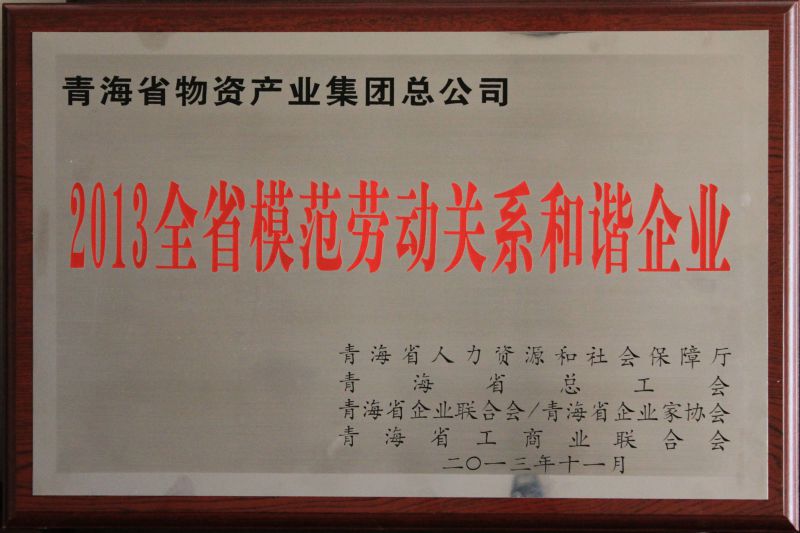 青海省物资产业集团总公司
2013全省模范劳动关系和谐企业
青海省人力资源和社会保障厅
青海省总工会
青海省企业联合会/青海省企业家协会
青海省工商业联合会
二〇一三年十一月